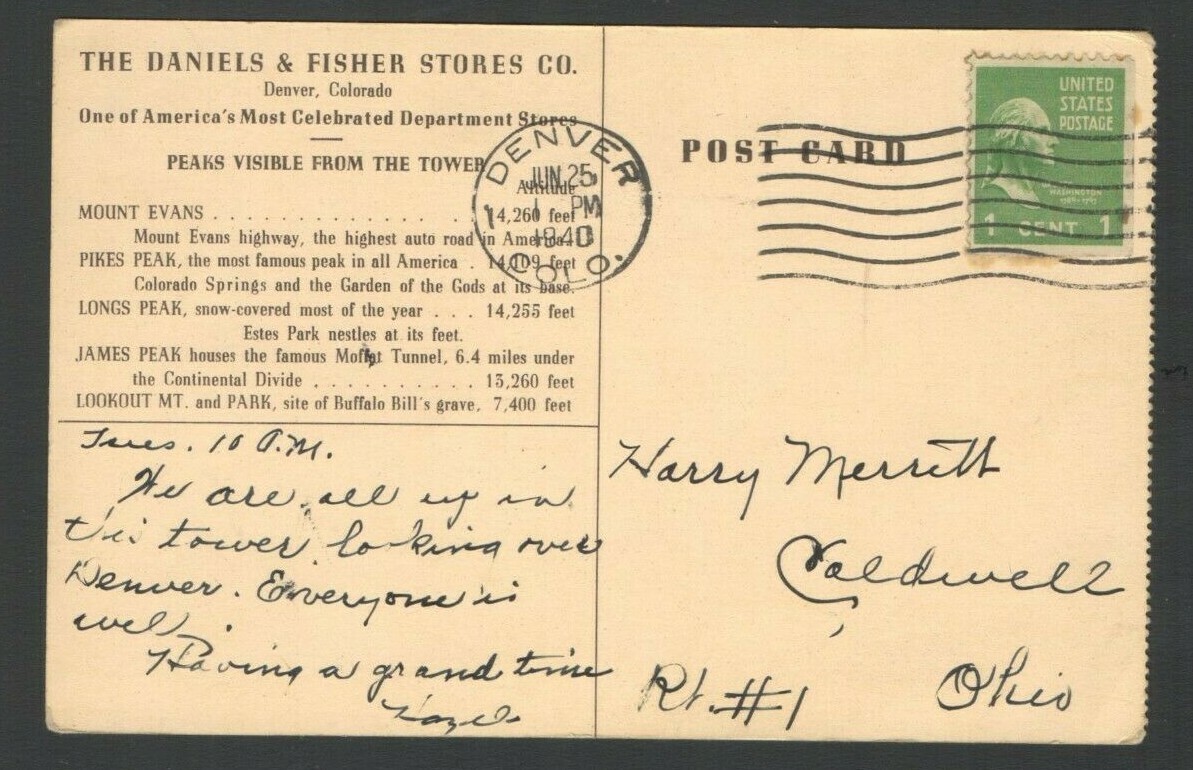 THE DANIELS & FISHER STORES CO.
Denver, Colorado
One of America's Most Celebrated Department Stores
PEAKS VISIBLE FROM THE TOWER
Altitude
MOUNT EVANS . . . . . . . . . . . . . . . . 14,260 feet
Mount Evans highway, the highest auto road in America.
PIKES PEAK, the most famous peak in all America . 14,109 feet
Colorado Springs and the Garden of the Gods at its base.
LONGS PEAK, snow-covered most of the year . . . 14,255 feet
Estes Park nestles at its feet.
JAMES PEAK houses the famous Moffat Tunnel, 6.4 miles under
the Continental Divide . . . . . . . . . . 13,260 feet
LOOKOUT MT. and PARK, site of Buffalo Bill's grave, 7,400 feet
Tues. 10 A.M.
We are all up in
this tower looking over
Denver. Everyone is
well.
Having a grand time
Hazel
DENVER
JUN 25
1 PM
1940
COLO.
POST CARD
UNITED
STATES
POSTAGE
WASHINGTON
1789-1797
1 CENT 1
Harry Merritt
Caldwell
Rt. #1 Ohio